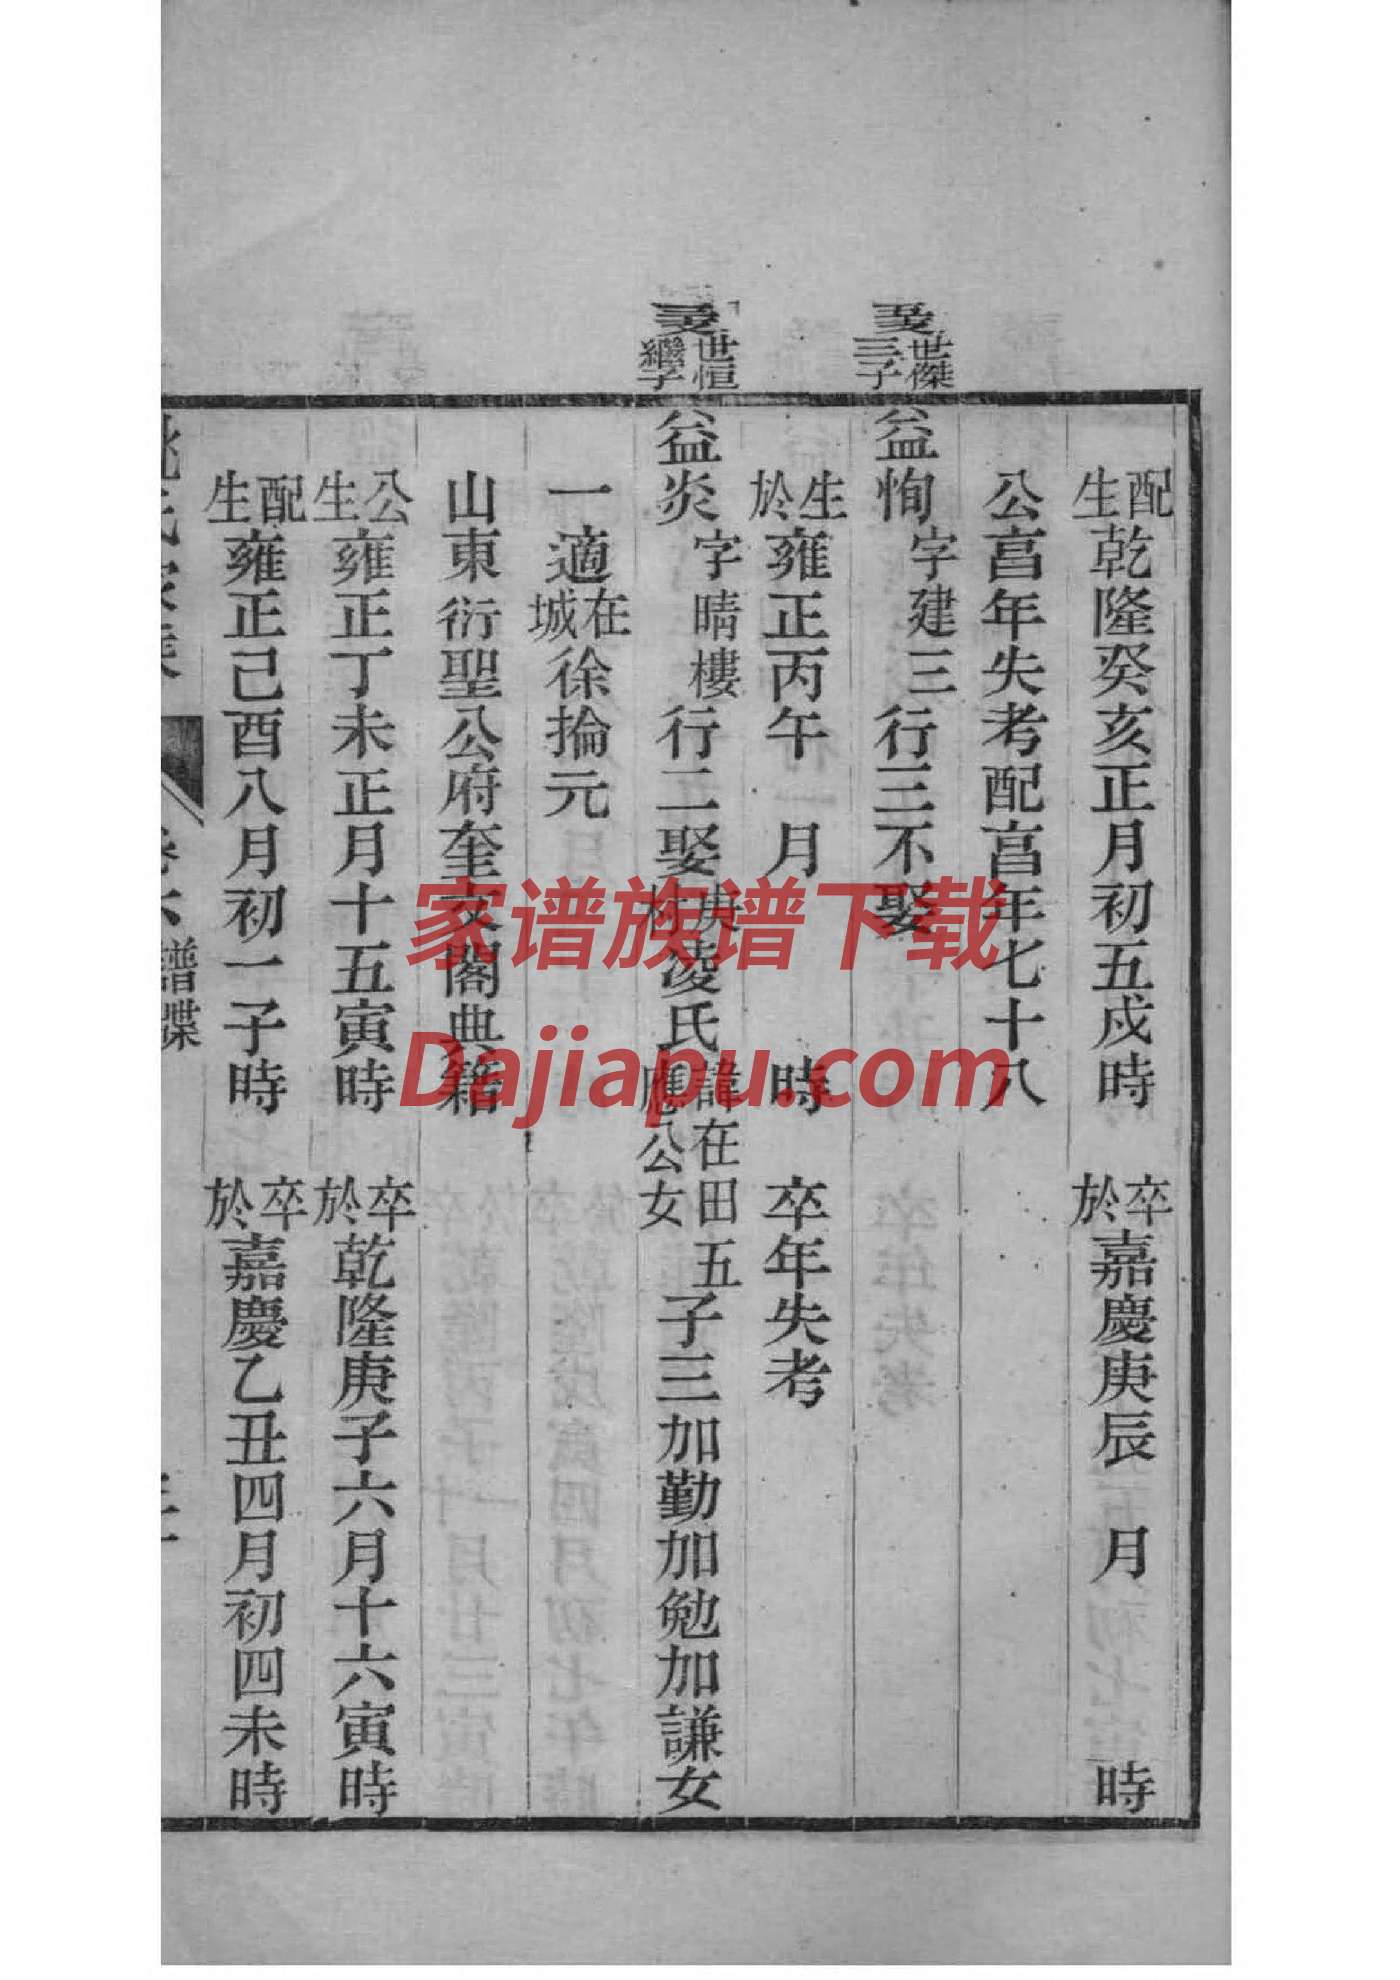 配生乾隆癸亥正月初五戌時 卒於嘉慶庚辰 月 時
公亯年失考配亯年七十八
世傑三子
益恂字建三行三不娶
生於雍正丙午 月 時 卒年失考
世恒繼子
益炎字晴樓行二娶凌氏諱在田應公女五子三加勤加勉加謙女
一適在城徐掄元
山東衍聖公府奎文閣典籍
公生雍正丁未正月十五寅時 卒於乾隆庚子六月十六寅時
配生雍正己酉八月初一子時 卒於嘉慶乙丑四月初四未時
譜牒
家谱族谱下载
Dajiapu.com